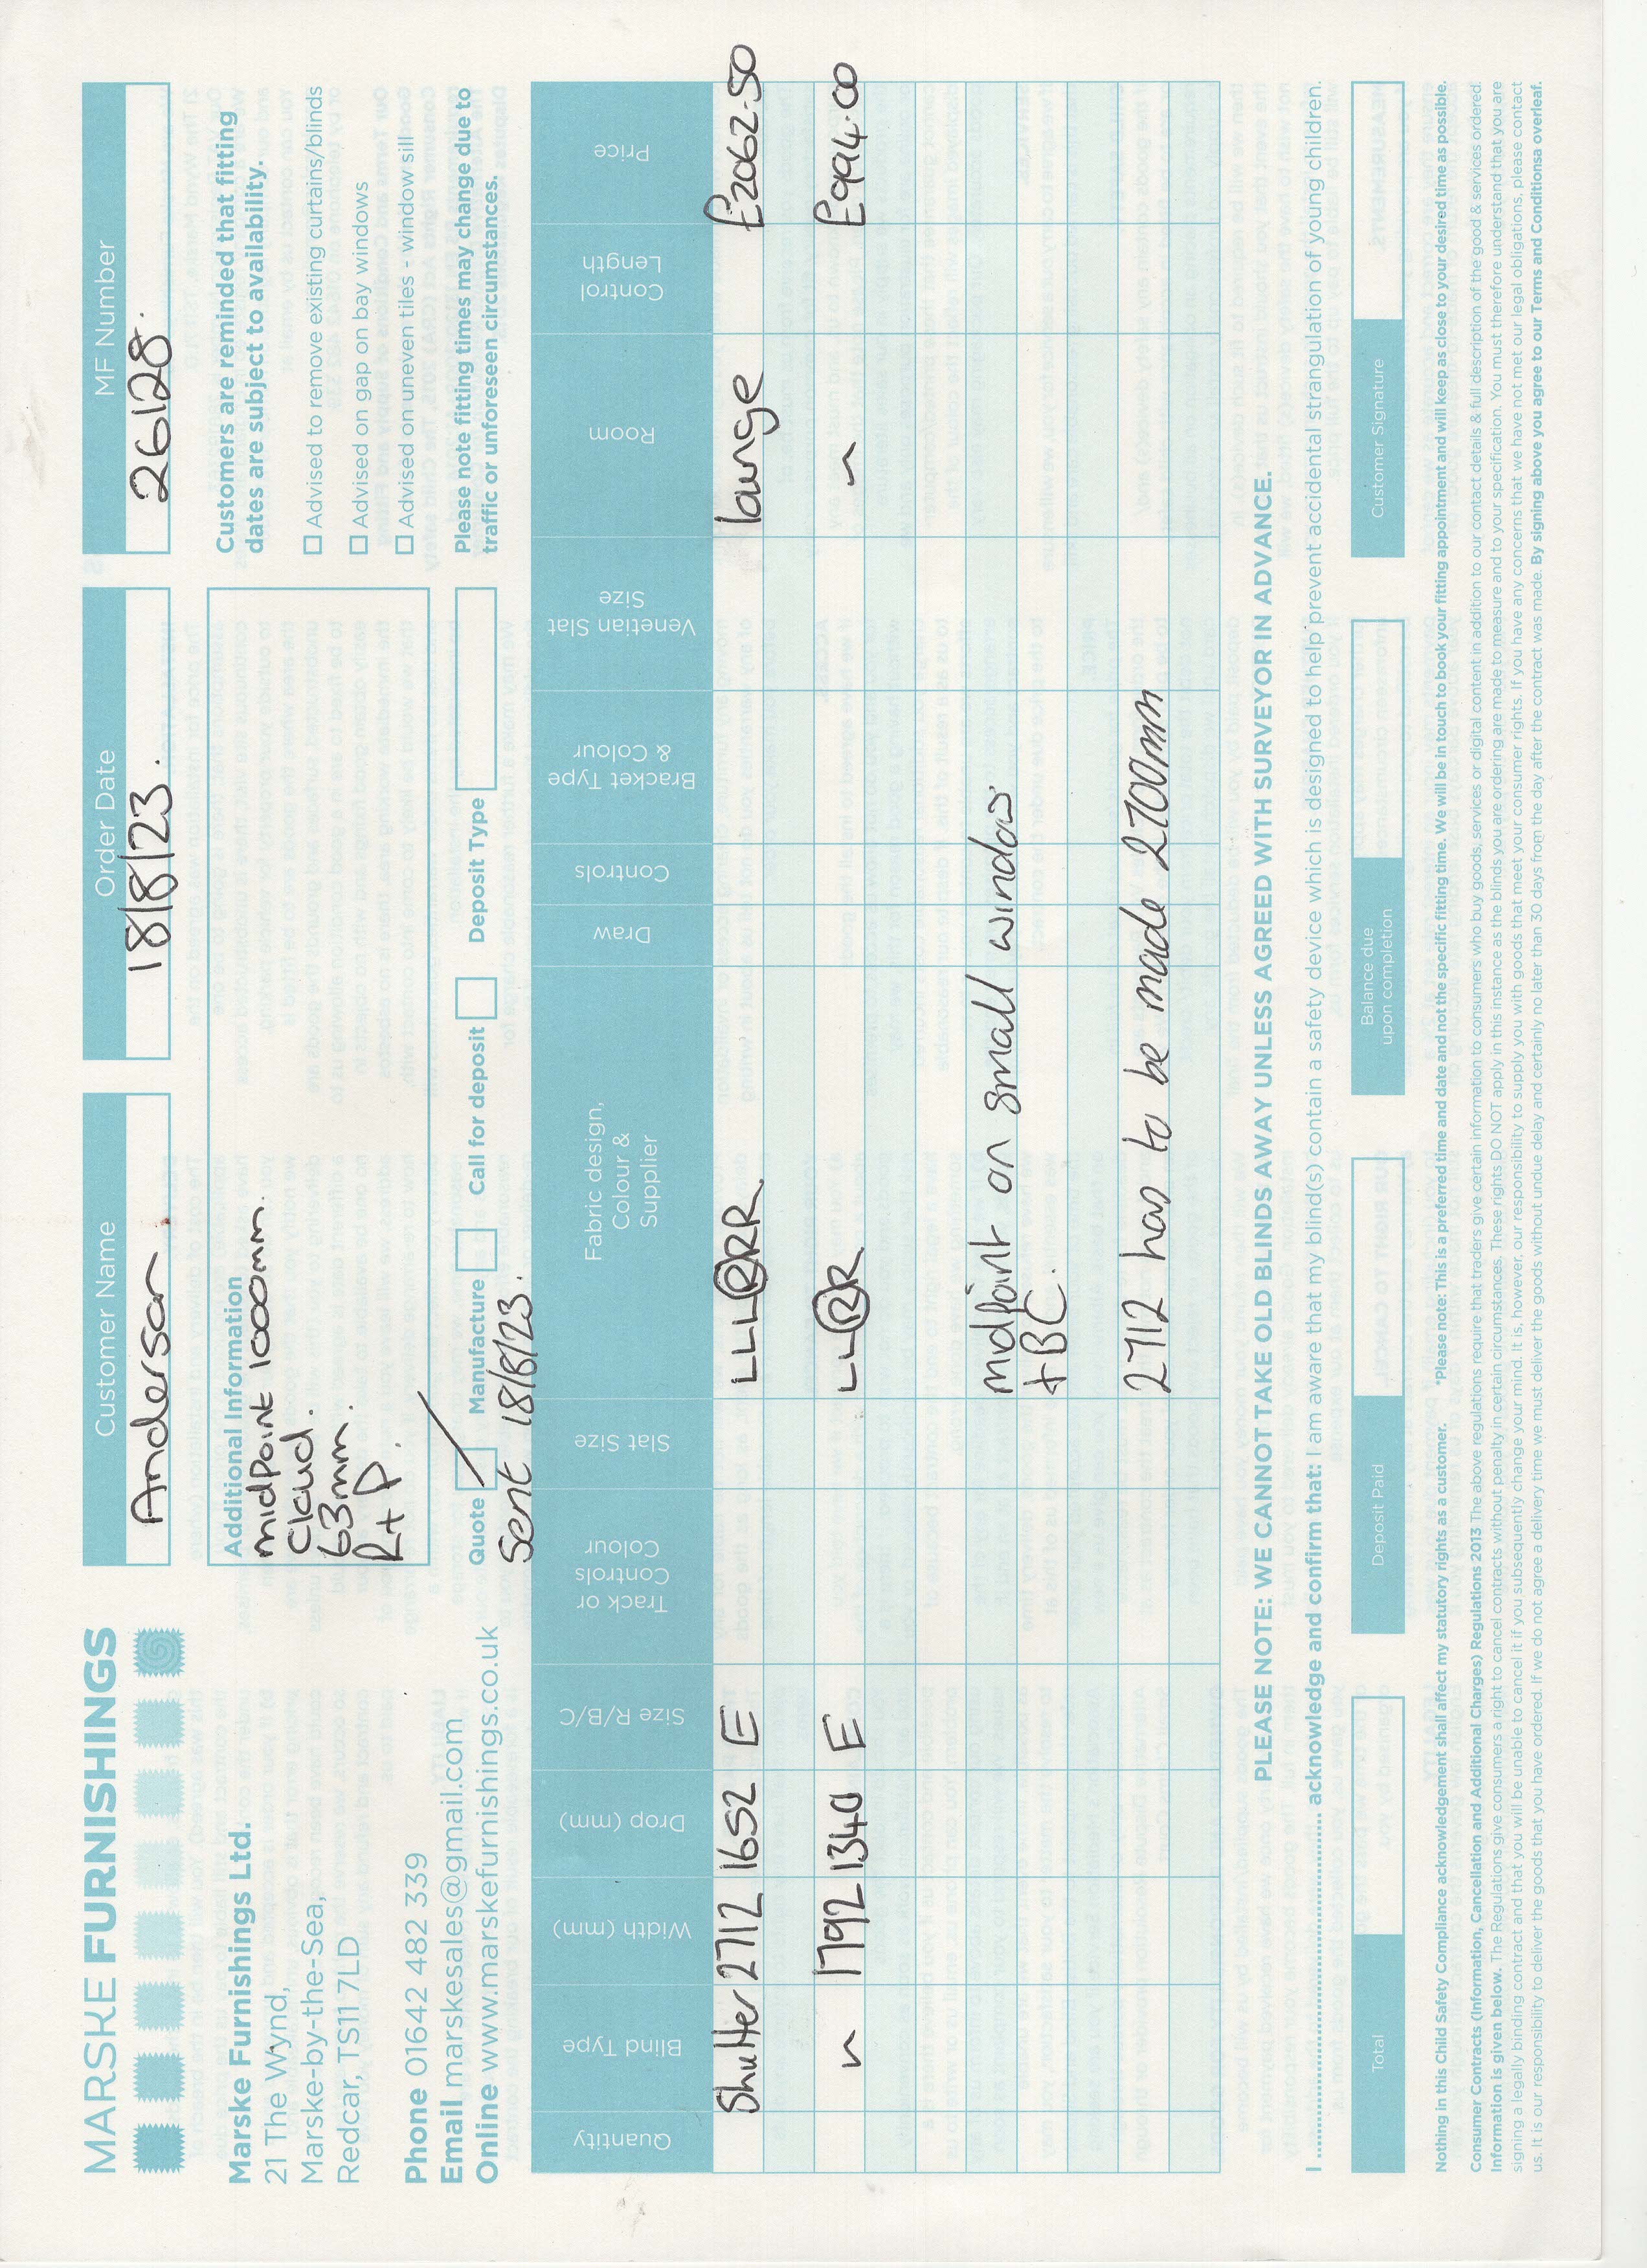 MARSKE FURNISHINGS
Marske Furnishings Ltd.
21 The Wynd,
Marske-by-the-Sea,
Redcar, TS11 7LD
Phone 01642 482 339
Email marskesales@gmail.com
Online www.marskefurnishings.co.uk
Customer Name
Anderson
Order Date
18/8/23.
MF Number
26128.
Additional Information
midpoint 1000mm.
cloud.
63mm.
R+P.
Quote Manufacture Call for deposit Deposit Type
Sent 18/8/23.
Customers are reminded that fitting
dates are subject to availability.
Advised to remove existing curtains/blinds
Advised on gap on bay windows
Advised on uneven tiles - window sill
Please note fitting times may change due to
traffic or unforeseen circumstances.
Quantity Blind Type Width (mm) Drop (mm) Size R/B/C Track or Controls Colour Slat Size Fabric design, Colour & Supplier Draw Controls Bracket Type & Colour Venetian Slat Size Room Control Length Price
Shutter 2712 1652 E LLL®RR lounge £2062.50
~ 1792 1340 E LL®R ~ £994.00
midpoint on small window
+BC.
2712 has to be made 2700mm
PLEASE NOTE: WE CANNOT TAKE OLD BLINDS AWAY UNLESS AGREED WITH SURVEYOR IN ADVANCE.
I .............................. acknowledge and confirm that: I am aware that my blind(s) contain a safety device which is designed to help prevent accidental strangulation of young children.
Total Deposit Paid Balance due upon completion Customer Signature
Nothing in this Child Safety Compliance acknowledgement shall affect my statutory rights as a customer. *Please note: This is a preferred time and date and not the specific fitting time. We will be in touch to book your fitting appointment and will keep as close to your desired time as possible.
Consumer Contracts (Information, Cancellation and Additional Charges) Regulations 2013 The above regulations require that traders give certain information to consumers who buy goods, services or digital content in addition to our contact details & full description of the good & services ordered.
Information is given below. The Regulations give consumers a right to cancel contracts without penalty in certain circumstances. These rights DO NOT apply in this instance as the blinds you are ordering are made to measure and to your specification. You must therefore understand that you are
signing a legally binding contract and that you will be unable to cancel it if you subsequently change your mind. It is, however, our responsibility to supply you with goods that meet your consumer rights. If you have any concerns that we have not met our legal obligations, please contact
us. It is our responsibility to deliver the goods that you have ordered. If we do not agree a delivery time we must deliver the goods without undue delay and certainly no later than 30 days from the day after the contract was made. By signing above you agree to our Terms and Conditionsa overleaf.